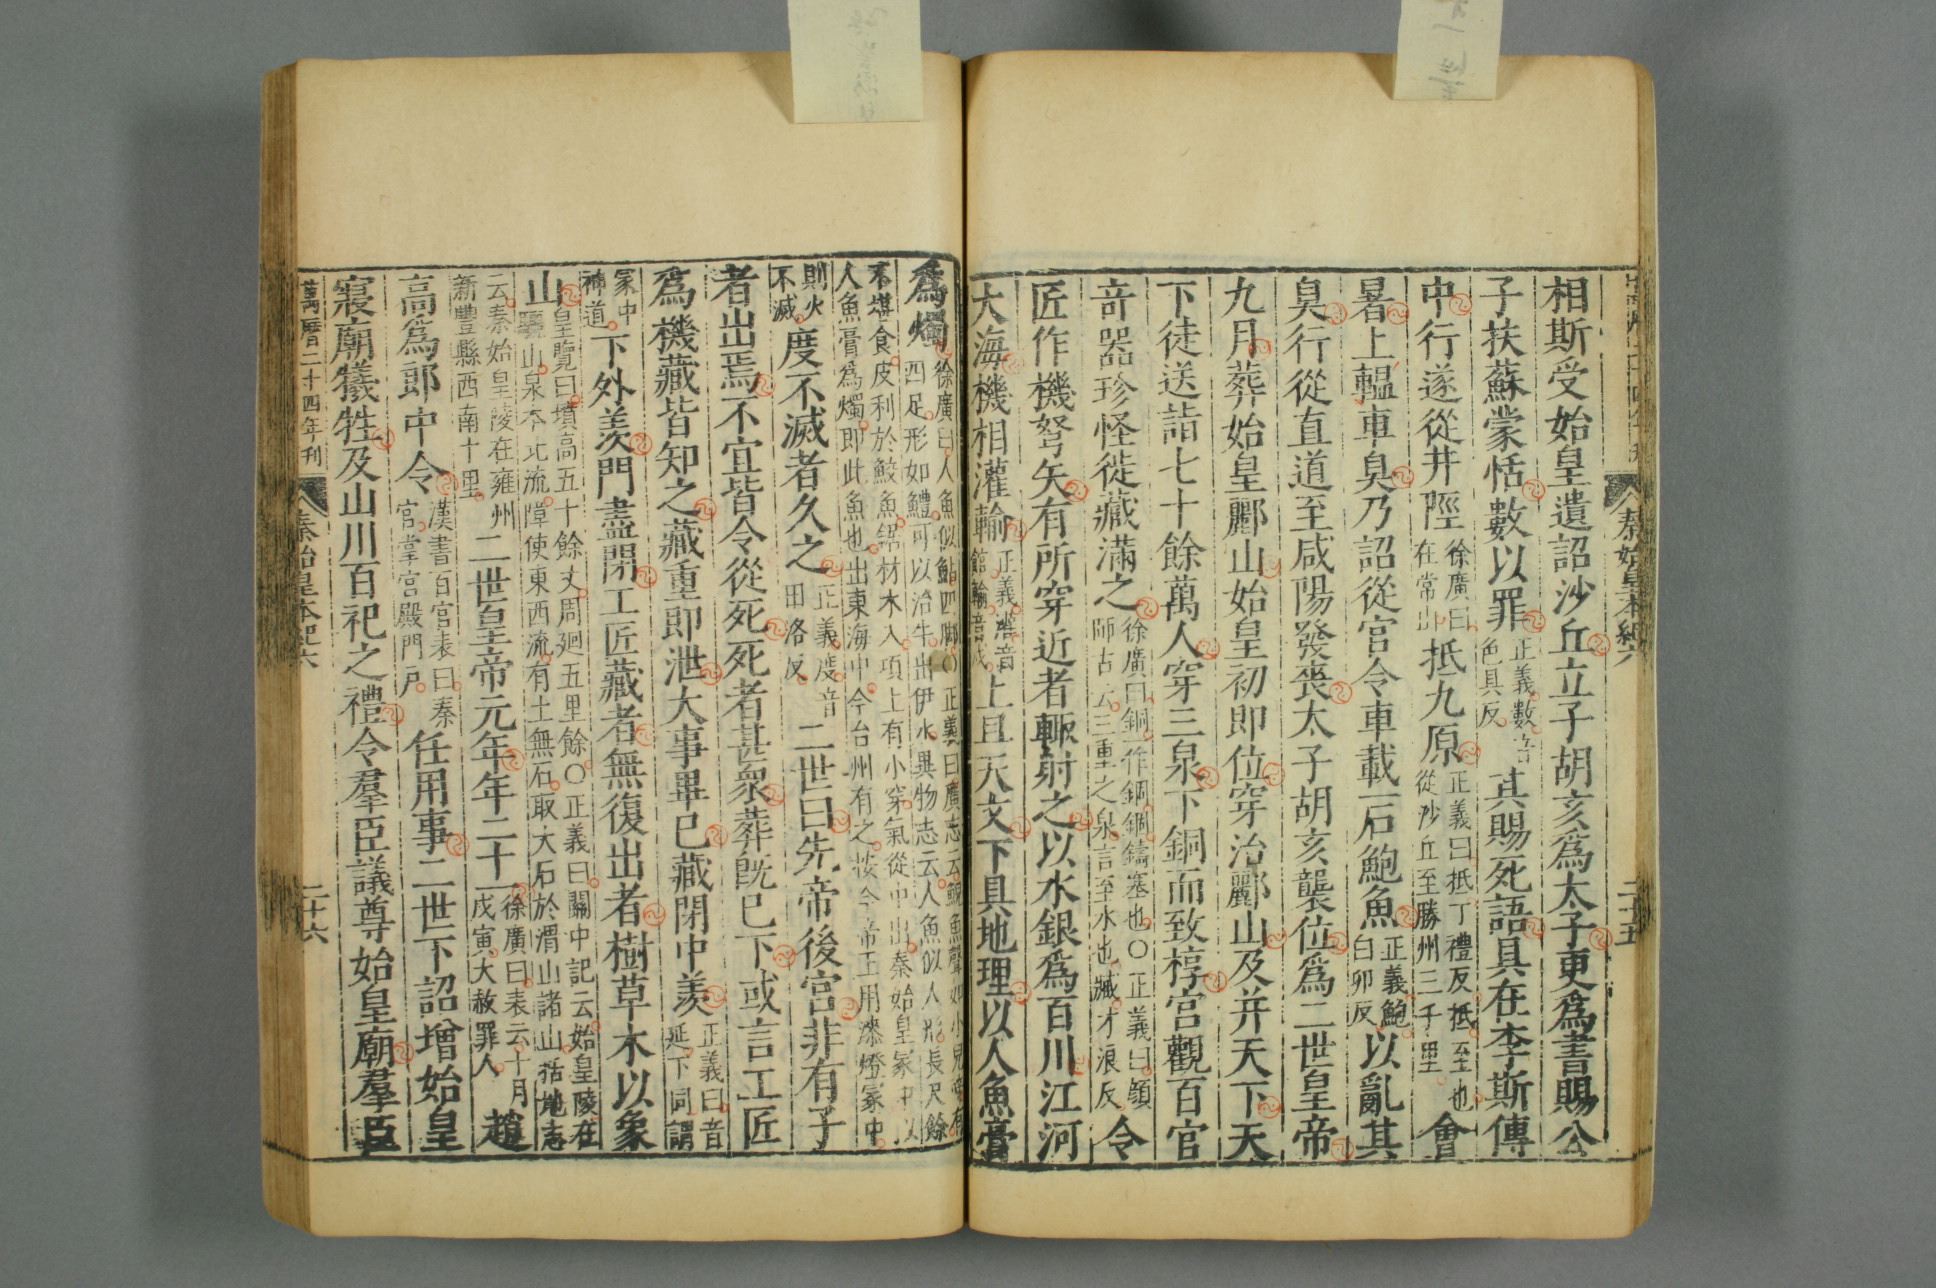 秦始皇本紀六
二十五
相斯受始皇遺詔沙丘立子胡亥爲太子更爲書賜公
子扶蘇蒙恬數以罪正義數音色具反其賜死語具在李斯傳
中行遂從井陘徐廣曰在常山抵九原正義曰抵丁禮反抵至也從沙丘至勝州三千里會
暑上轀車臭乃詔從官令車載一石鮑魚正義鮑白卯反以亂其
臭行從直道至咸陽發喪太子胡亥襲位爲二世皇帝
九月葬始皇酈山始皇初即位穿治酈山及并天下天
下徒送詣七十餘萬人穿三泉下銅而致椁宮觀百官
奇器珍怪徙藏滿之徐廣曰銅一作錮錮鑄塞也○正義曰顏師古云三重之泉言至水也臧才浪反令
匠作機弩矢有所穿近者輒射之以水銀爲百川江河
大海機相灌輸正義灌音館輸音戍上具天文下具地理以人魚膏
爲燭徐廣曰人魚似鮎四脚○正義曰廣志云鯢魚聲如小兒啼有四足形如鱧可以治牛出伊水異物志云人魚似人形長尺餘
不堪食皮利於鮫魚鋸材木入項上有小穿氣從中出秦始皇冢中以人魚膏爲燭即此魚也出東海中今台州有之按今帝王用漆燈冢中
則火不滅度不滅者久之正義度音田洛反二世曰先帝後宮非有子
者出焉不宜皆令從死死者甚衆葬旣已下或言工匠
爲機藏皆知之藏重即泄大事畢已藏閉中羨正義曰音延下同謂
冢中神道下外羨門盡閉工匠藏者無復出者樹草木以象
山皇覽曰墳高五十餘丈周廻五里餘○正義曰關中記云始皇陵在驪山泉本北流障使東西流有土無石取大石於渭山諸山括地志
云秦始皇陵在雍州新豐縣西南十里二世皇帝元年年二十一徐廣曰表云十月戊寅大赦罪人趙
高爲郎中令漢書百官表曰秦官掌宮殿門戶任用事二世下詔增始皇
寢廟犧牲及山川百祀之禮令羣臣議尊始皇廟羣臣
萬曆二十四年刊
秦始皇本紀六
二十六